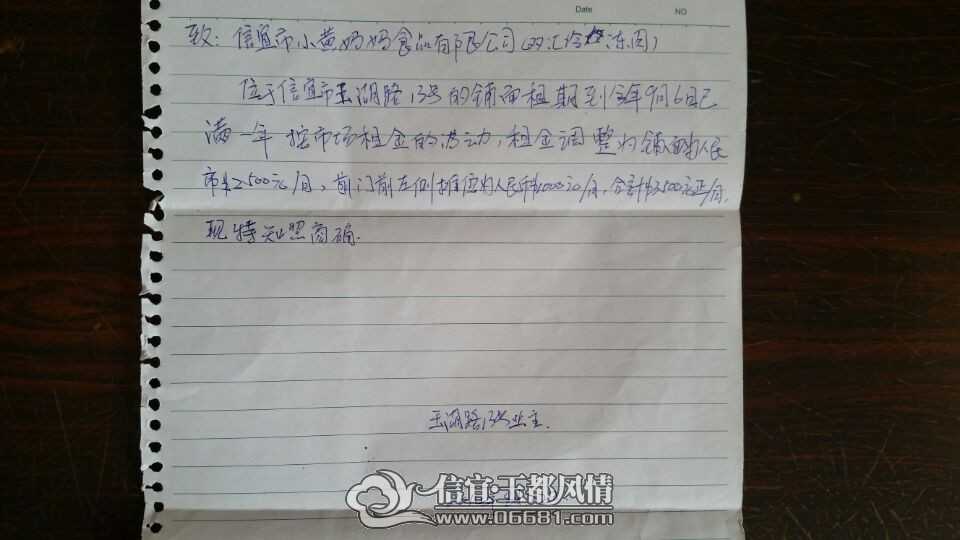 Date NO
致：信宜市小黄妈妈食品有限公司(双汇冷冻肉)
位于信宜市玉湖路13号的铺面租期到今年9月6日已
满一年 按市场租金的浮动，租金调整为铺面为人民
币¥2500元/月，前门前左侧摊位为人民币¥1000元/月，合计¥3500元正/月.
现特知照商确.
玉湖路13号业主.
信宜·玉都风情
www.06681.com